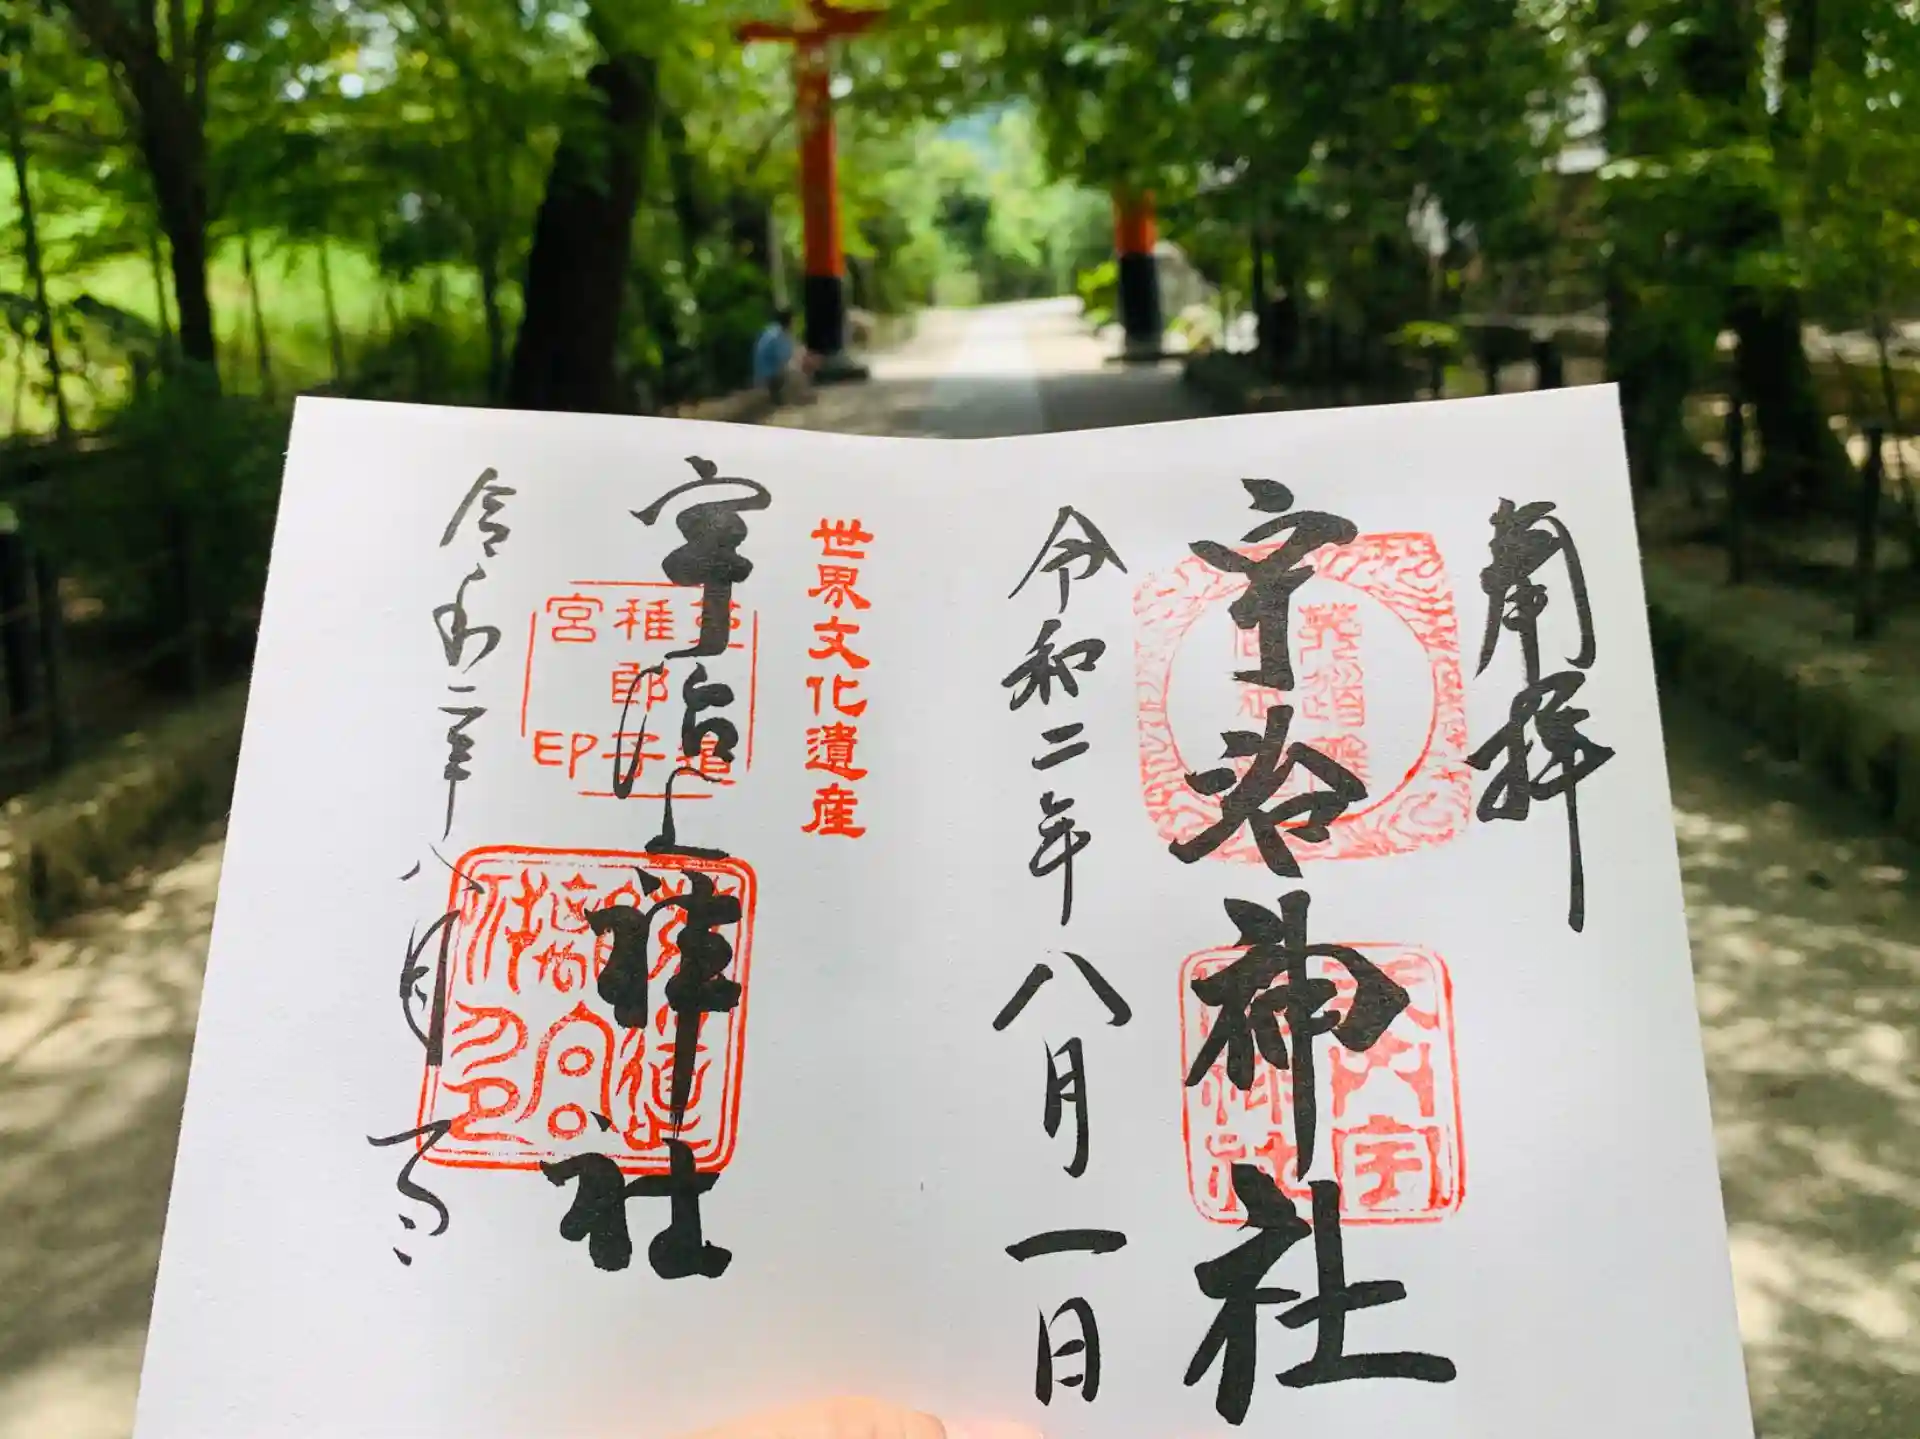 奉拝
宇治神社
令和二年八月一日
世界文化遺産
宇治上神社
菟道稚郎子宮印
令和二年八月一日